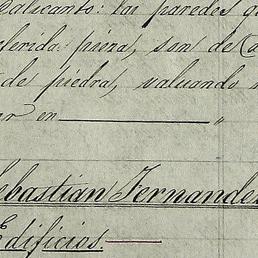 Calicanto: las paredes
referida pieza, son de
de piedra, valuando
en ———— "
Sebastian Fernandez
Edificios.